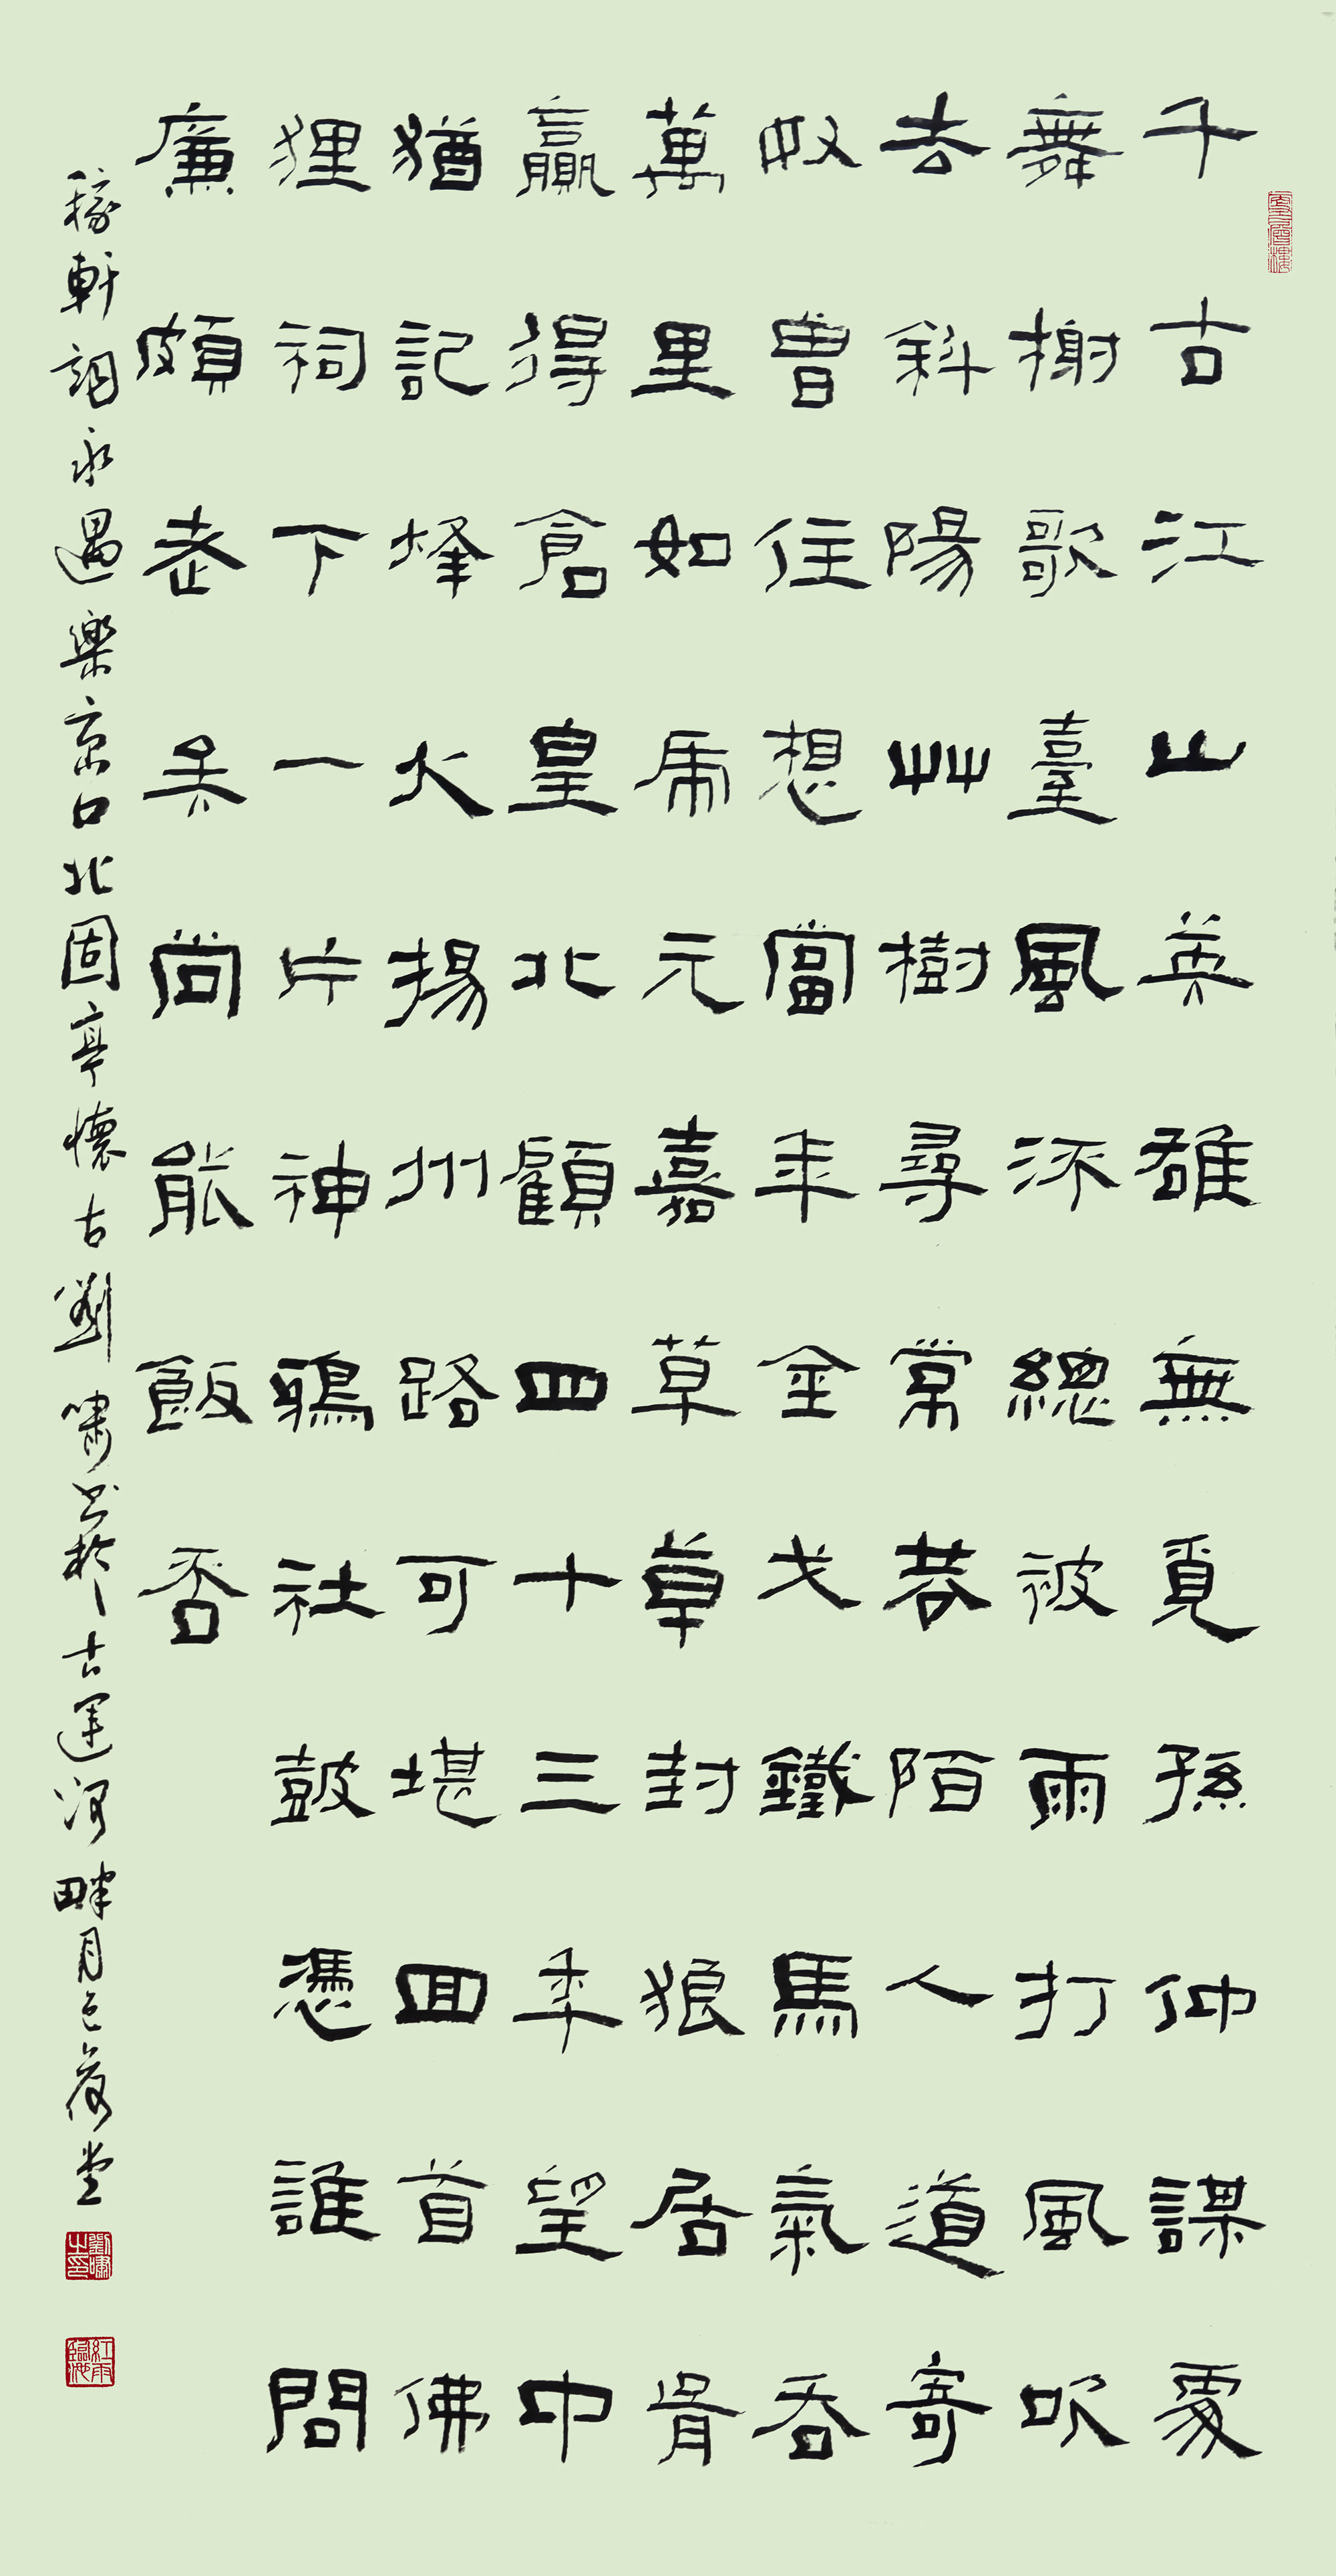 千古江山英雄無覓孫仲謀處
舞榭歌臺風流總被雨打風吹
去斜陽艸樹尋常巷陌人道寄
奴曾住想當年金戈鐵馬氣吞
萬里如虎元嘉草草封狼居胥
贏得倉皇北顧四十三年望中
猶記烽火揚州路可堪回首佛
狸祠下一片神鴉社鼓憑誰問
廉頗老矣尚能飯否
稼軒詞永遇樂京口北固亭懷古劉嘯書於古運河畔月色荷堂
劉嘯之印